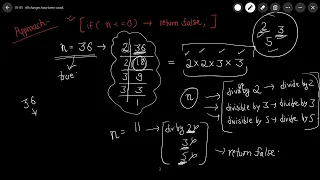 19:45 All changes have been saved.
Approach→ [if (n<=0) → return false;]
2 3
5
n = 36 → 2 | 36
2 | 18
3 | 9
3 | 3
1
→ 2×2×3×3
true.
36
n → divby 2 → divide by 2
divisible by 3 → divide by 3
divisible by 5 → divide by 5
n = 11 → div by 2
3
5
→ return false.